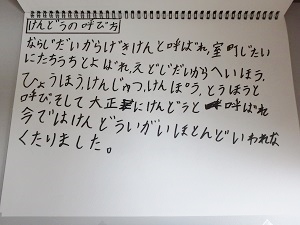 けんどうの呼び方
ならじだいからげきけんと呼ばれ、室町じたい
にたちうちとよばれ、えどじだいからへいほう、
ひょうほう、けんじゅつ、けんぽう、とうほうと
呼び、そして大正にけんどうと呼ばれ
今ではけんどういがいほとんどいわれな
くたりました。